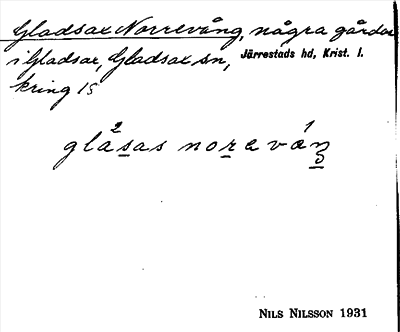 Gladsax Norrevång, några gårdar
i Gladsax, Gladsax sn, Järrestads hd, Krist. l.
kring 15
glásas noreváŋ
NILS NILSSON 1931